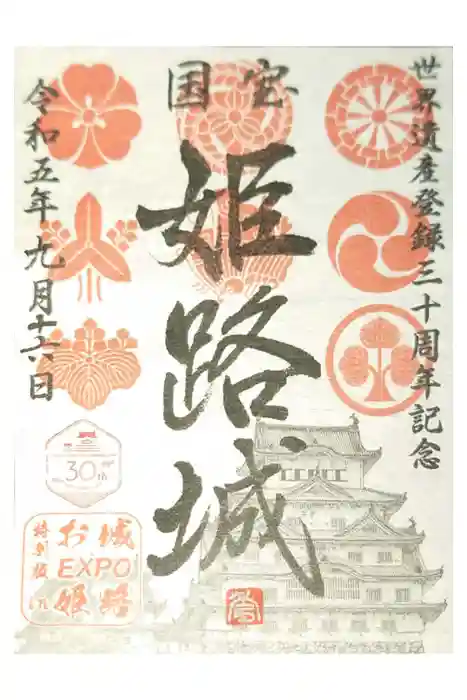 世界遺産登録三十周年記念
国宝
姫路城
令和五年九月十六日
30th
お城
EXPO
姫路
特別版